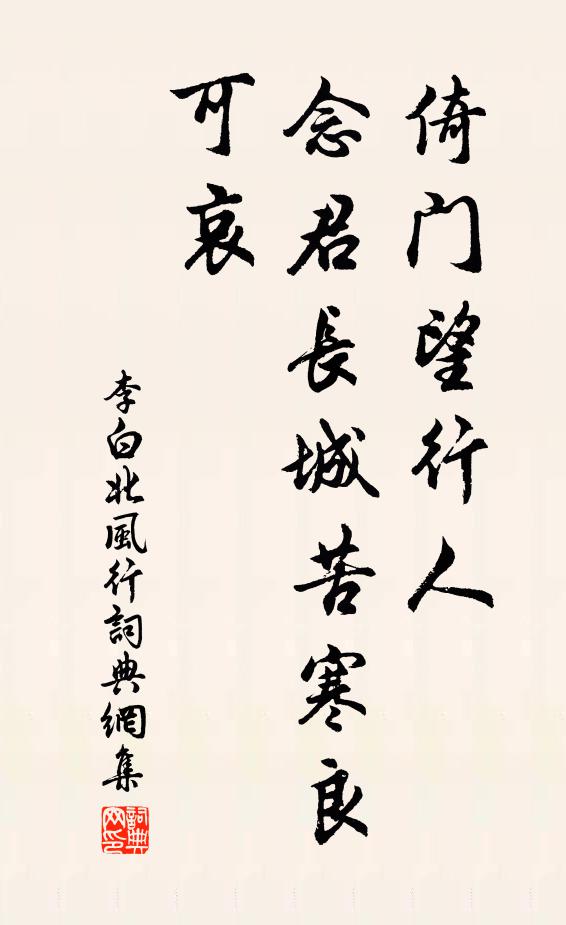 倚門望行人
念君長城苦寒良
可哀
李白北風行詞典網集
詞典
网印